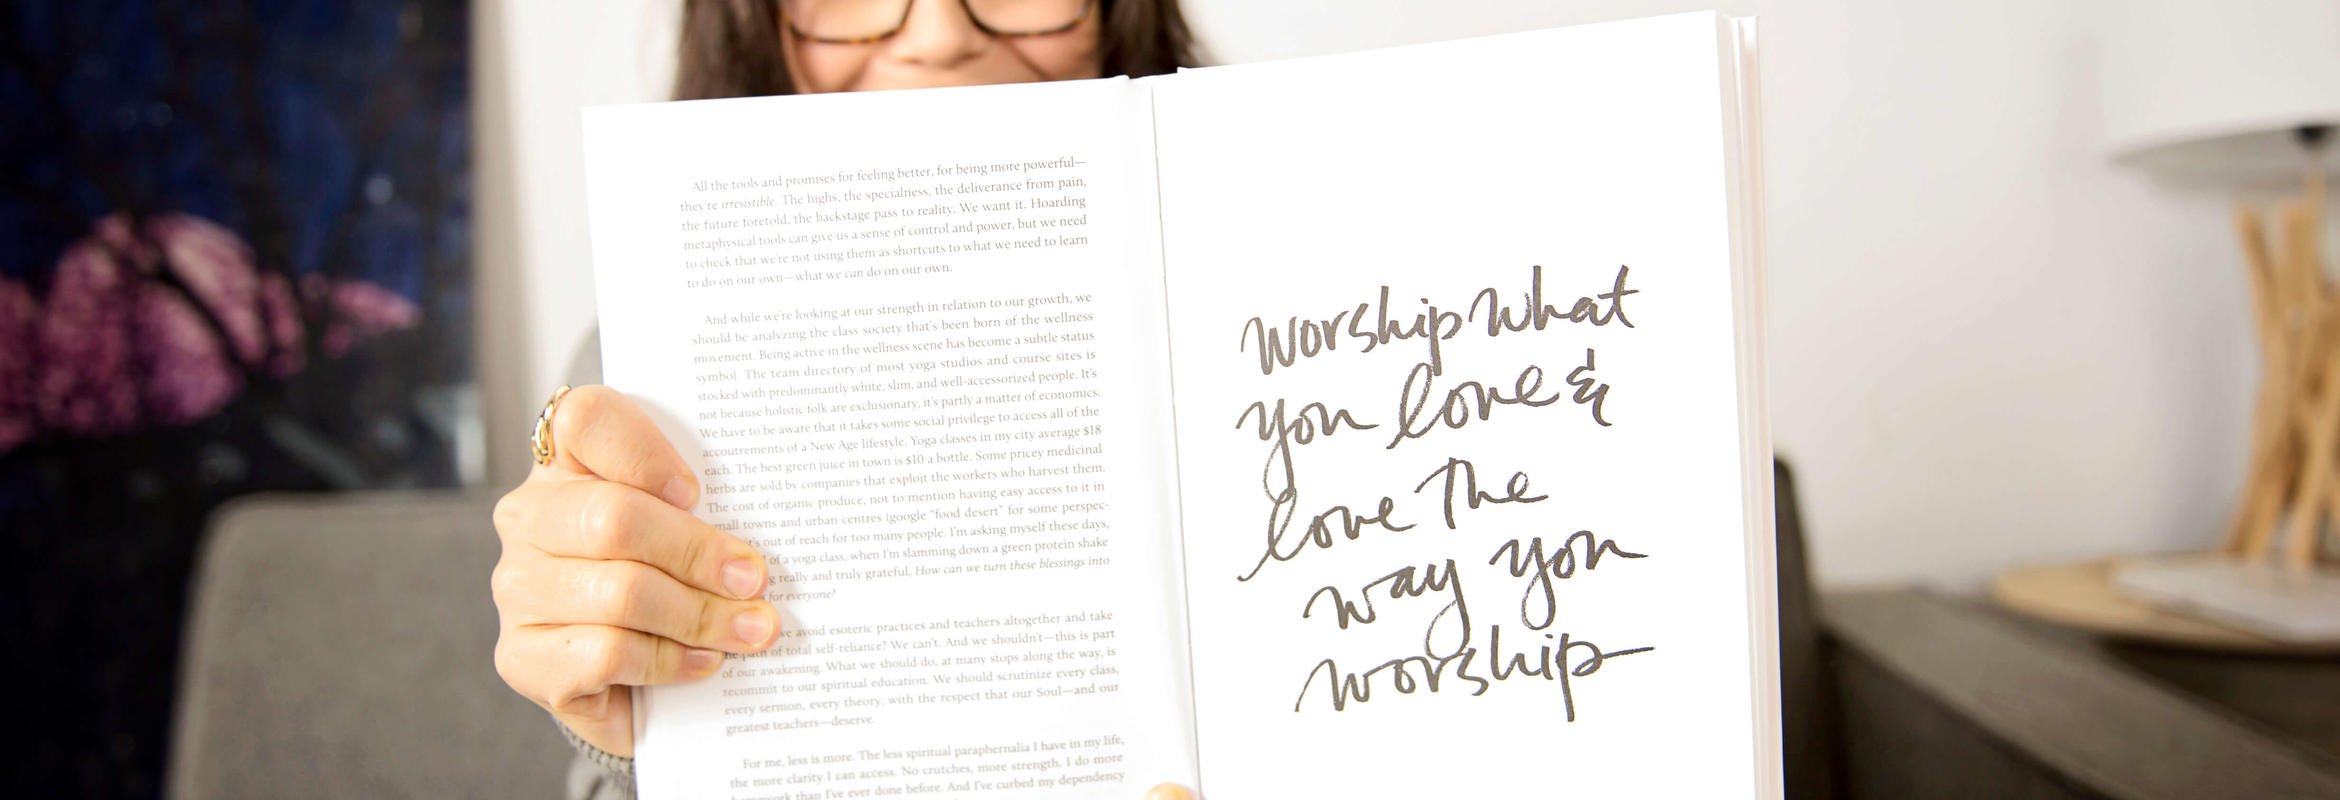 All the tools and promises for feeling better, for being more powerful—
they're irresistible. The highs, the specialness, the deliverance from pain,
the future foretold, the backstage pass to reality. We want it. Hoarding
metaphysical tools can give us a sense of control and power, but we need
to check that we're not using them as shortcuts to what we need to learn
to do on our own—what we can do on our own.
And while we're looking at our strength in relation to our growth, we
should be analyzing the class society that's been born of the wellness
movement. Being active in the wellness scene has become a subtle status
symbol. The team directory of most yoga studios and course sites is
stocked with predominantly white, slim, and well-accessorized people. It's
not because holistic folk are exclusionary, it's partly a matter of economics.
We have to be aware that it takes some social privilege to access all of the
accoutrements of a New Age lifestyle. Yoga classes in my city average $18
each. The best green juice in town is $10 a bottle. Some pricey medicinal
herbs are sold by companies that exploit the workers who harvest them.
The cost of organic produce, not to mention having easy access to it in
towns and urban centres (google "food desert" for some perspec-
out of reach for too many people. I'm asking myself these days,
of a yoga class, when I'm slamming down a green protein shake
really and truly grateful, How can we turn these blessings into
for everyone?
avoid esoteric practices and teachers altogether and take
of total self-reliance? We can't. And we shouldn't—this is part
of our awakening. What we should do, at many stops along the way, is
recommit to our spiritual education. We should scrutinize every class,
every sermon, every theory, with the respect that our Soul—and our
greatest teachers—deserve.
For me, less is more. The less spiritual paraphernalia I have in my life,
the more clarity I can access. No crutches, more strength. I do more
than I've ever done before. And I've curbed my dependency
worship what
you love &
love the
way you
worship